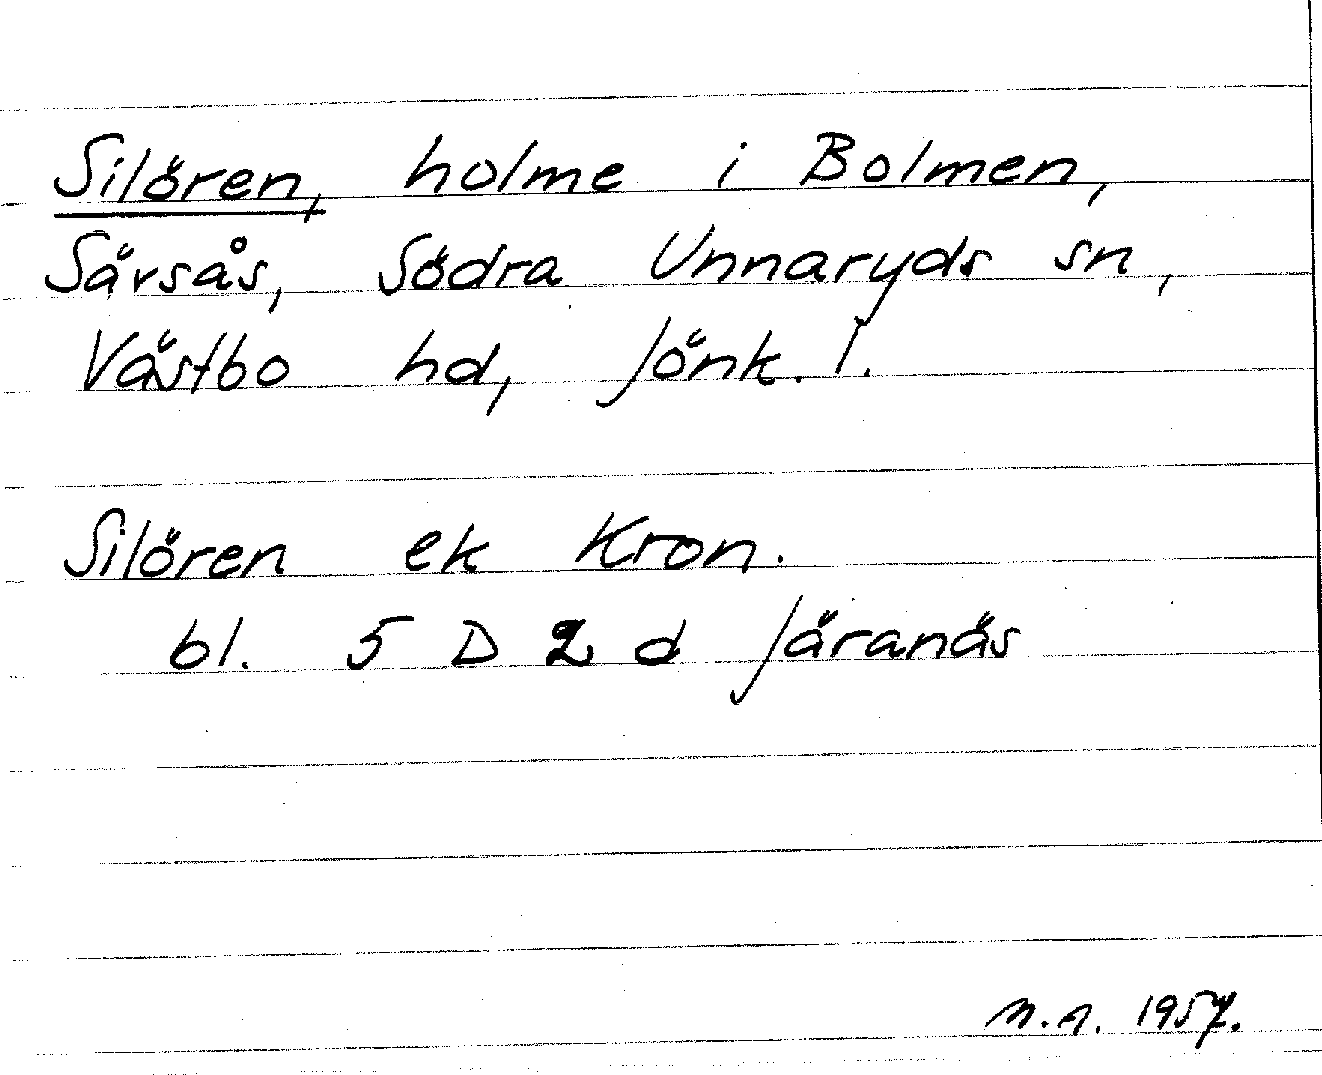 Silören, holme i Bolmen,
Sävsås, Södra Unnaryds sn,
Västbo hd, Jönk. l.
Silören ek Kron.
bl. 5 D 2 d Järanäs
1957.